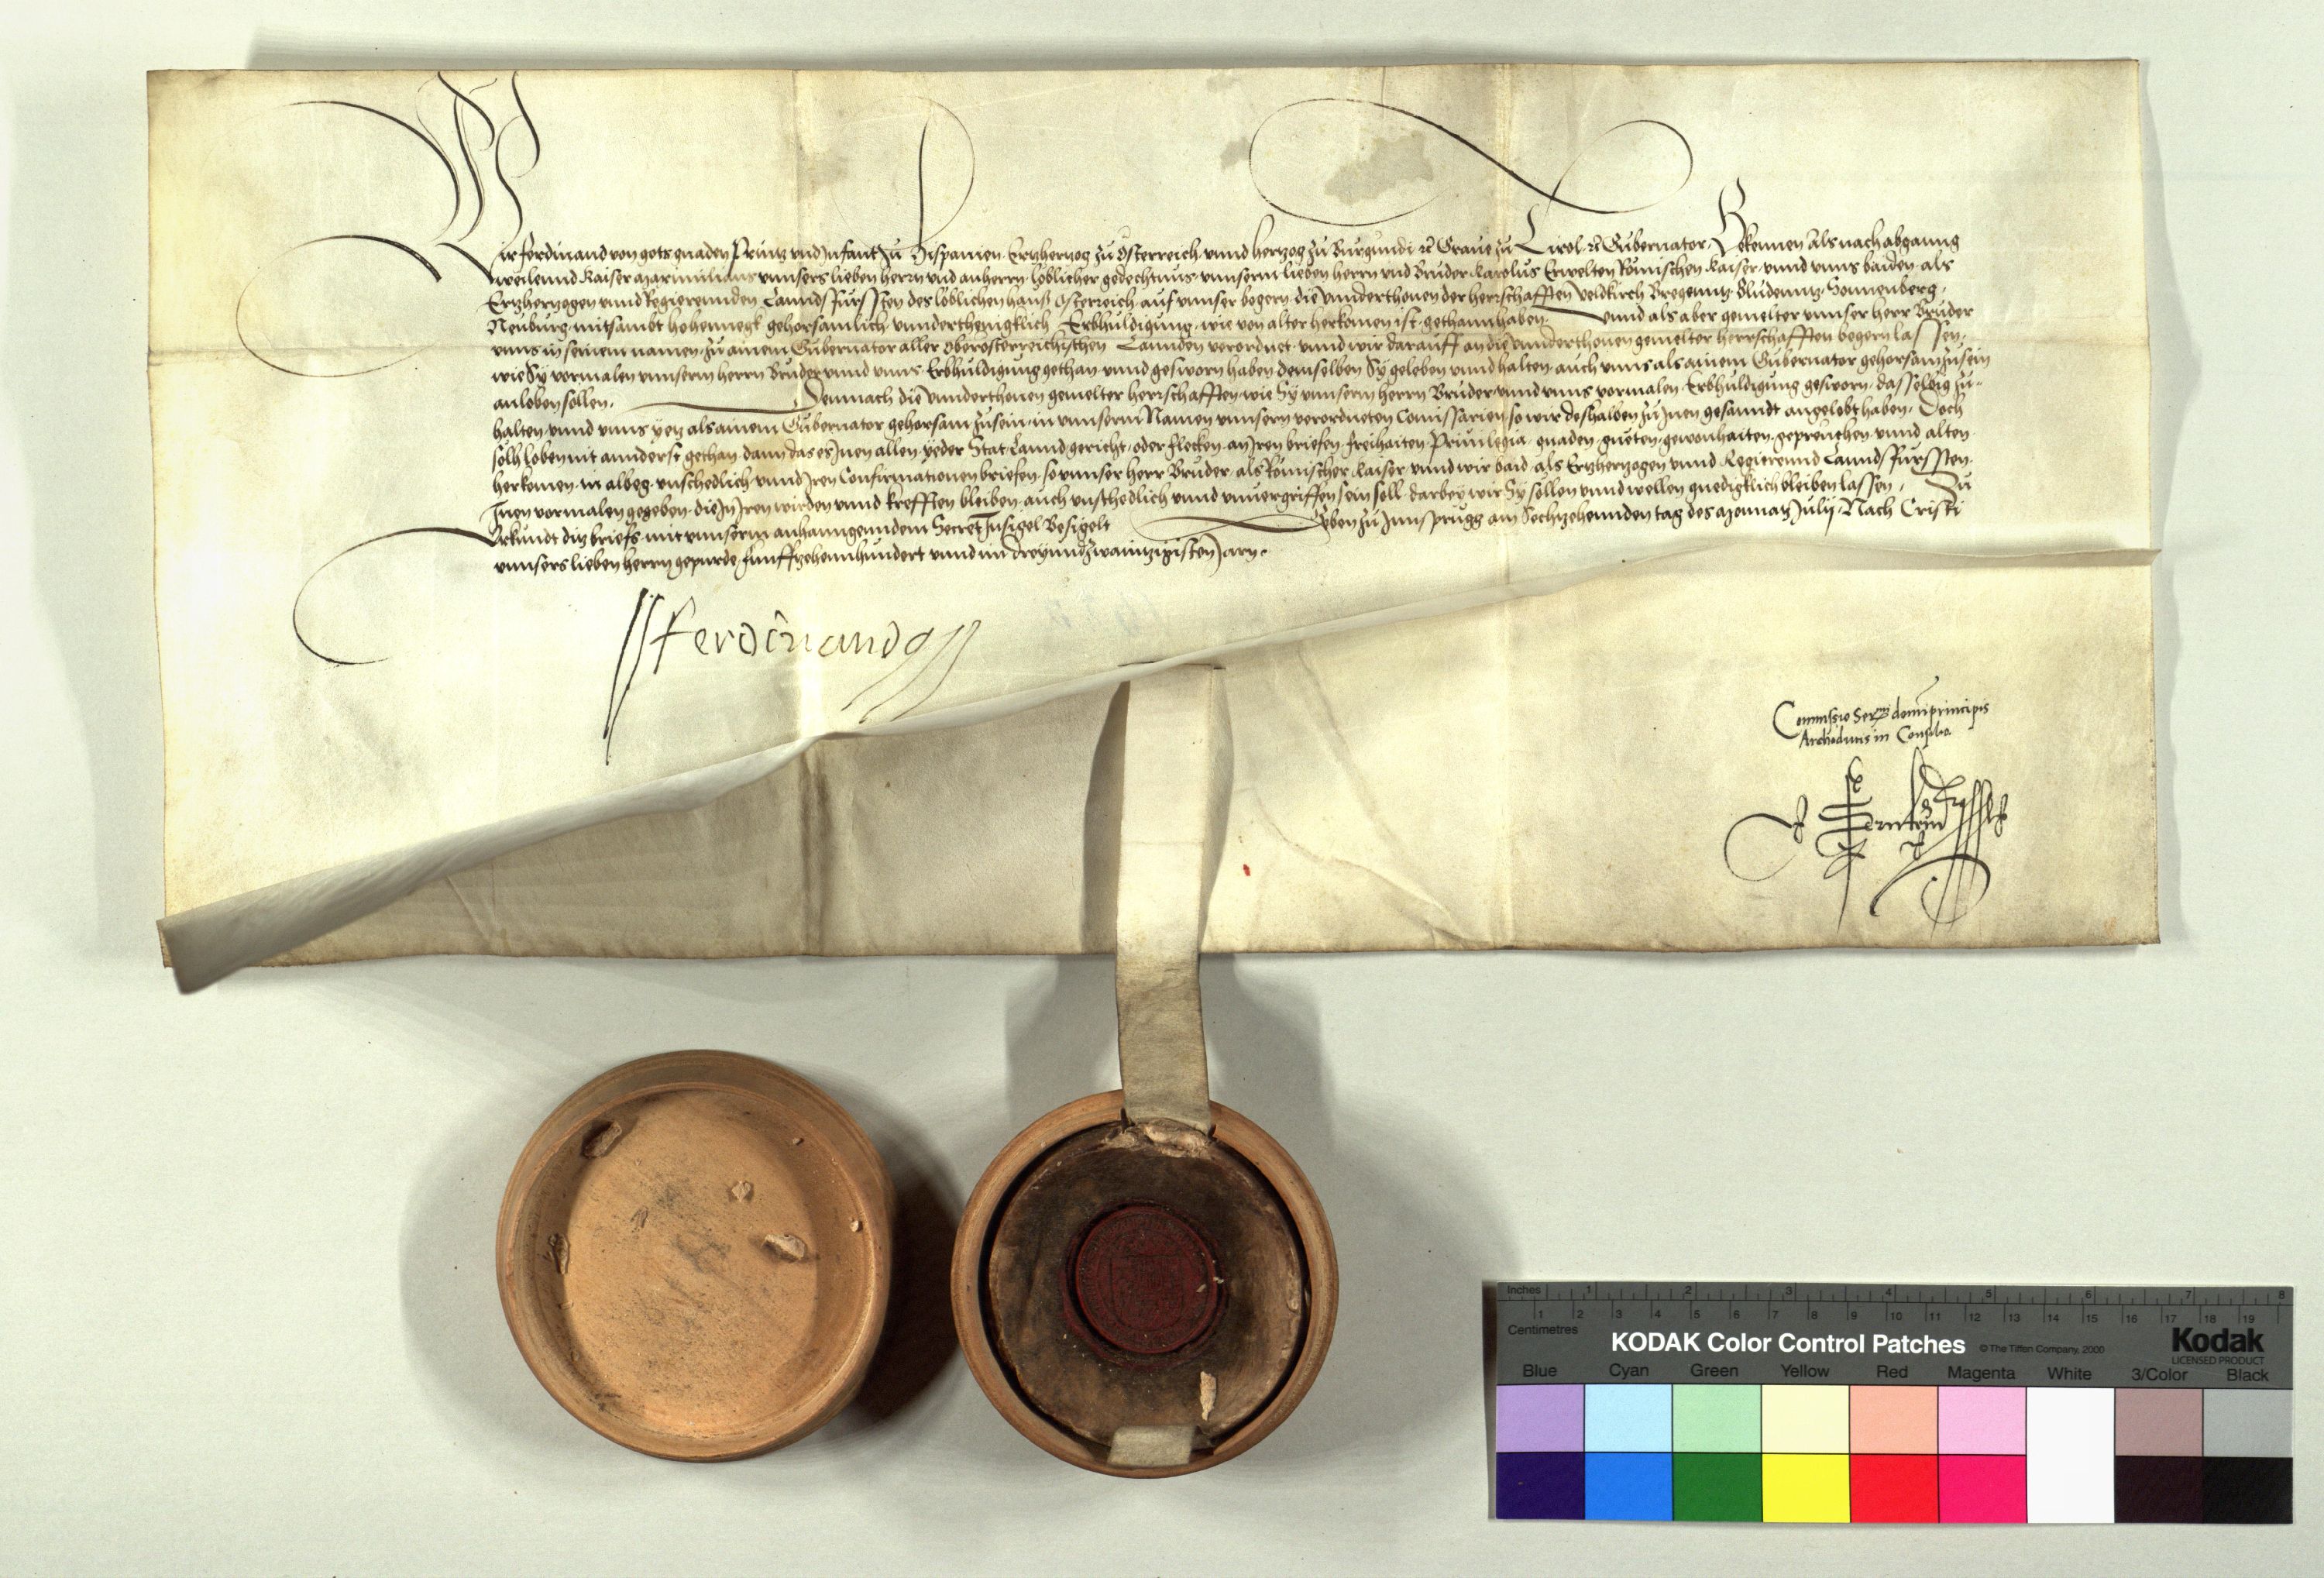 Wir Ferdinand von gots gnaden Printz vnd Infant zu Hispanien · Ertzhertzog zu Osterreich · vnnd hertzog zu Burgundi ⁊c̄ Graue zu Tirol · ⁊c̄ Gubernator · Bekennen Als nach abganng
weilennd Kaiser Maximilians vnnsers lieben herrn vnd anherrn · loblicher gedechtnus · vnnserm lieben herrn vnd Bruder · Karolus Erwelten Römischen Kaiser · vnnd vnns baiden · als
Ertzhertzogen vnnd Regierennden Lannds Fürssten des löblichen hauß Österreich · auf vnnser begern · die vnnderthonen der herrschafften Veldkirch Bregenntz · Bludenntz · Sonnenberg ·
Neuburg · mitsambt hohennegk gehorsamlich · vnnderthenigklich Erbhuldigung · wie von alter herkomen ist · gethann haben · vnnd als aber gemelter vnnser herr Bruder
vnns in seinem namen · zu ainem Gubernator aller Oberösterreichischen Lannden verordnet · vnnd wir darauff an die vnnderthonen gemelter herrschafften begern lassen,
wie Sy vormalen vnnserm herrn Bruder vnnd vnns · Erbhuldigung gethan · vnnd gesworn haben demselben Sy geleben vnnd halten · auch vnns als ainem Gubernator gehorsam zusein
anloben sollen · Demnach die vnnderthonen gemelter herrschafften · wie Sy vnnserm herrn Bruder · vnnd vnns vormalen · Erbhuldigung gesworn · dasselbig zu-
halten · vnnd vnns yetz als ainem Gubernator gehorsam zusein · in vnnserm Namen vnnsern verordneten Comissarien so wir deshalben zu Inen gesanndt angelobt haben · Doch
solh loben nit annderst gethan · dann das es Inen allen · yeder Stat · Lannd gericht · oder flecken · an Iren briefen · freihaiten · Priuilegia · gnaden · gueten · gewonhaiten · gepreuchen · vnnd alten
herkomen · in albeg · vnschedlich · vnnd Iren Confirmationen briefen · so vnnser herr Bruder · als Römischer Kaiser · vnnd wir baid · als Ertzhertzogen vnnd Regierennd Lannds Fürssten ·
Inen vormalen gegeben · die In Iren wirden vnnd krefften bleiben · auch vnschedlich vnnd vnuergriffen sein soll · darbey wir Sy sollen vnnd wellen gnedigklich bleiben lassen · Zu
Vrkundt ditz briefs · mit vnnserm anhanngenndem Secret Insigel Besigelt Geben zu Innsprugg am Sechtzehennden tag des Monnatz Julij · Nach Cristi
vnnsers lieben herrn gepurde · funfftzehennhundert vnnd im dreyundzwaintzigisten Jarn ·
Ferdinando
Commissio Ser.mi domini principis
Archiducis in Consilio
Inches 1 2 3 4 5 6 7 8
Centimetres 1 2 3 4 5 6 7 8 9 10 11 12 13 14 15 16 17 18 19
KODAK Color Control Patches © The Tiffen Company, 2000 Kodak
LICENSED PRODUCT
Blue Cyan Green Yellow Red Magenta White 3/Color Black